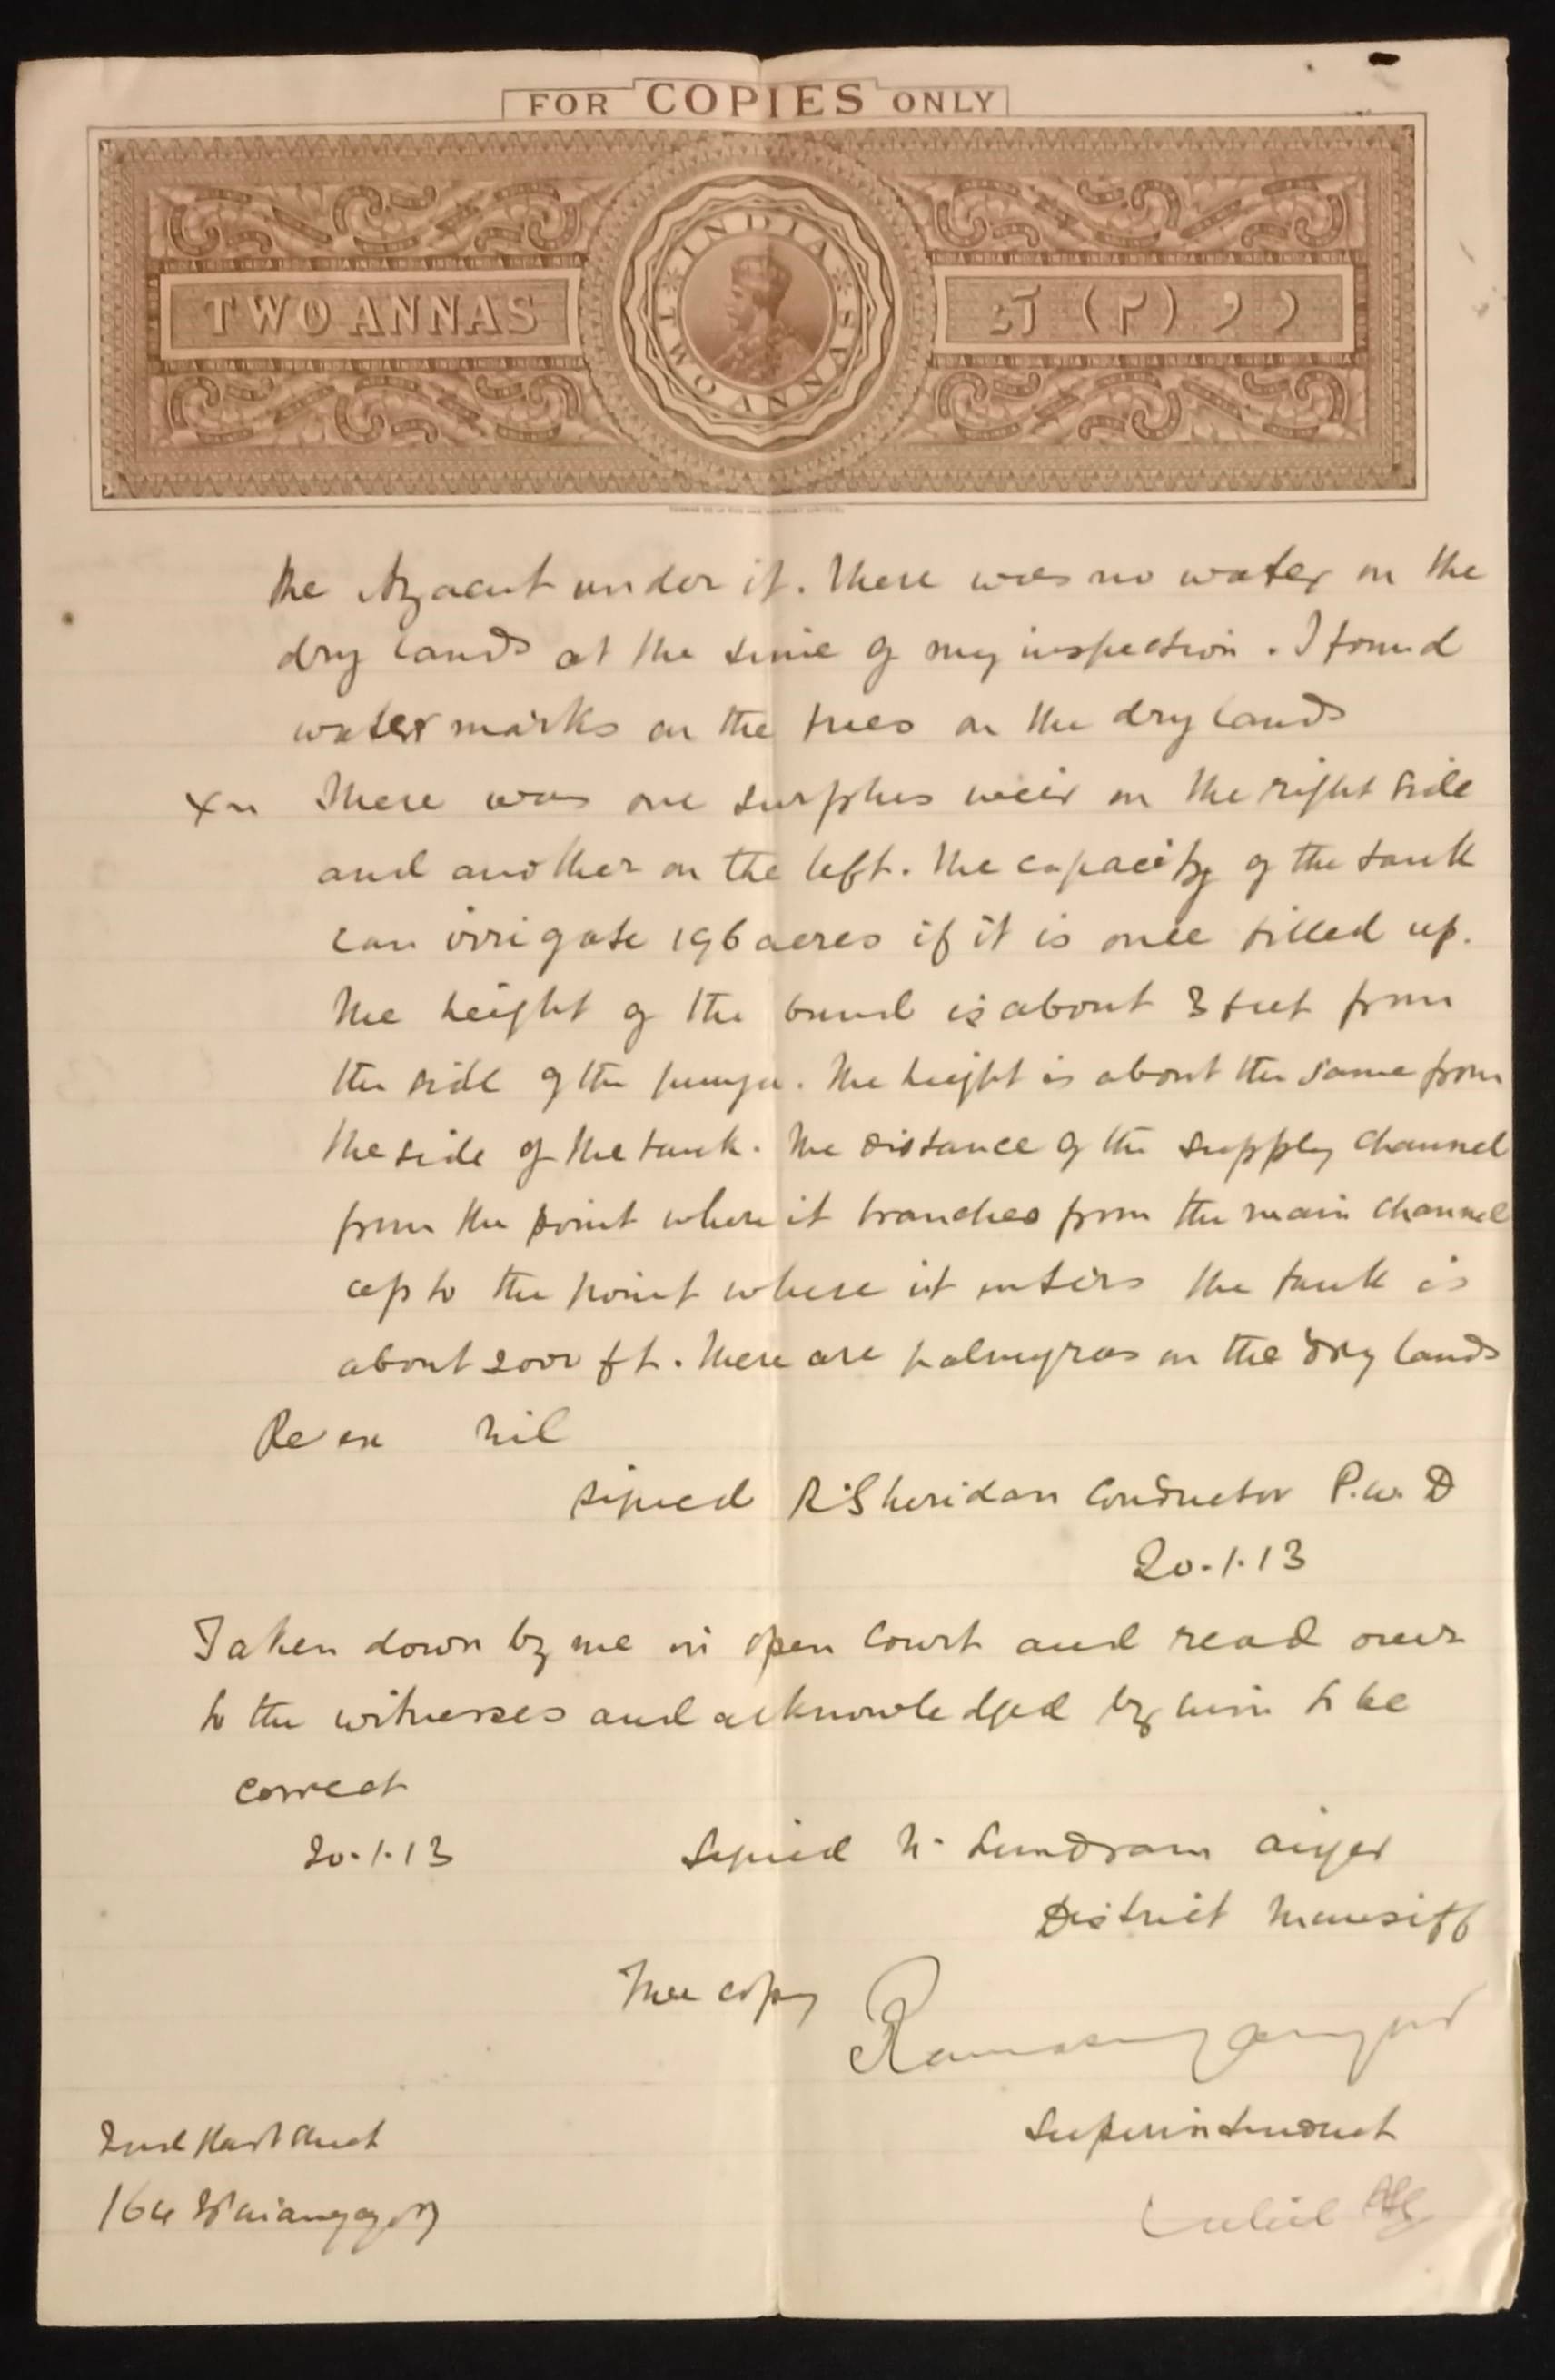 FOR COPIES ONLY
INDIA
TWO ANNAS
TWO ANNAS
the Ayacut under it. There was no water on the
dry lands at the time of my inspection. I found
water marks on the trees on the dry lands
Xn There was one surplus weir on the right side
and another on the left. The capacity of the tank
can irrigate 196 acres if it is once filled up.
The height of the bund is about 3 feet from
the side of the punja. The height is about the same from
the side of the tank. The distance of the supply channel
from the point where it branches from the main channel
up to the point where it enters the tank is
about 2000 ft. There are palmyras on the dry lands
Re ex nil
signed R. Sheridan Conductor P.W.D
20.1.13
Taken down by me in open Court and read over
to the witnesses and acknowledged by him to be
correct
20.1.13 Signed N. Sundram aiyer
District Munsiff
True copy
Superintendent
2nd
164